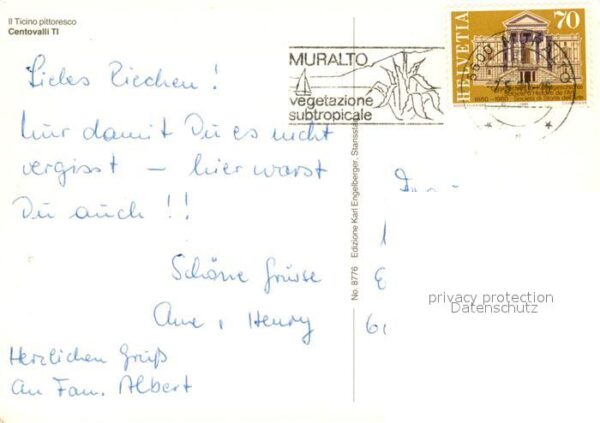 Il Ticino pittoresco
Centovalli TI
Liebes Riechen!
Nur damit Du es nicht
vergisst – hier warst
Du auch!!
Schöne Grüsse
Henry
Herzlichen Gruß
an Fam. Albert
No. 8776 Edizione Karl Engelberger, Stansstad
MURALTO
vegetazione
subtropicale
HELVETIA
70
1860-1960
privacy protection
Datenschutz